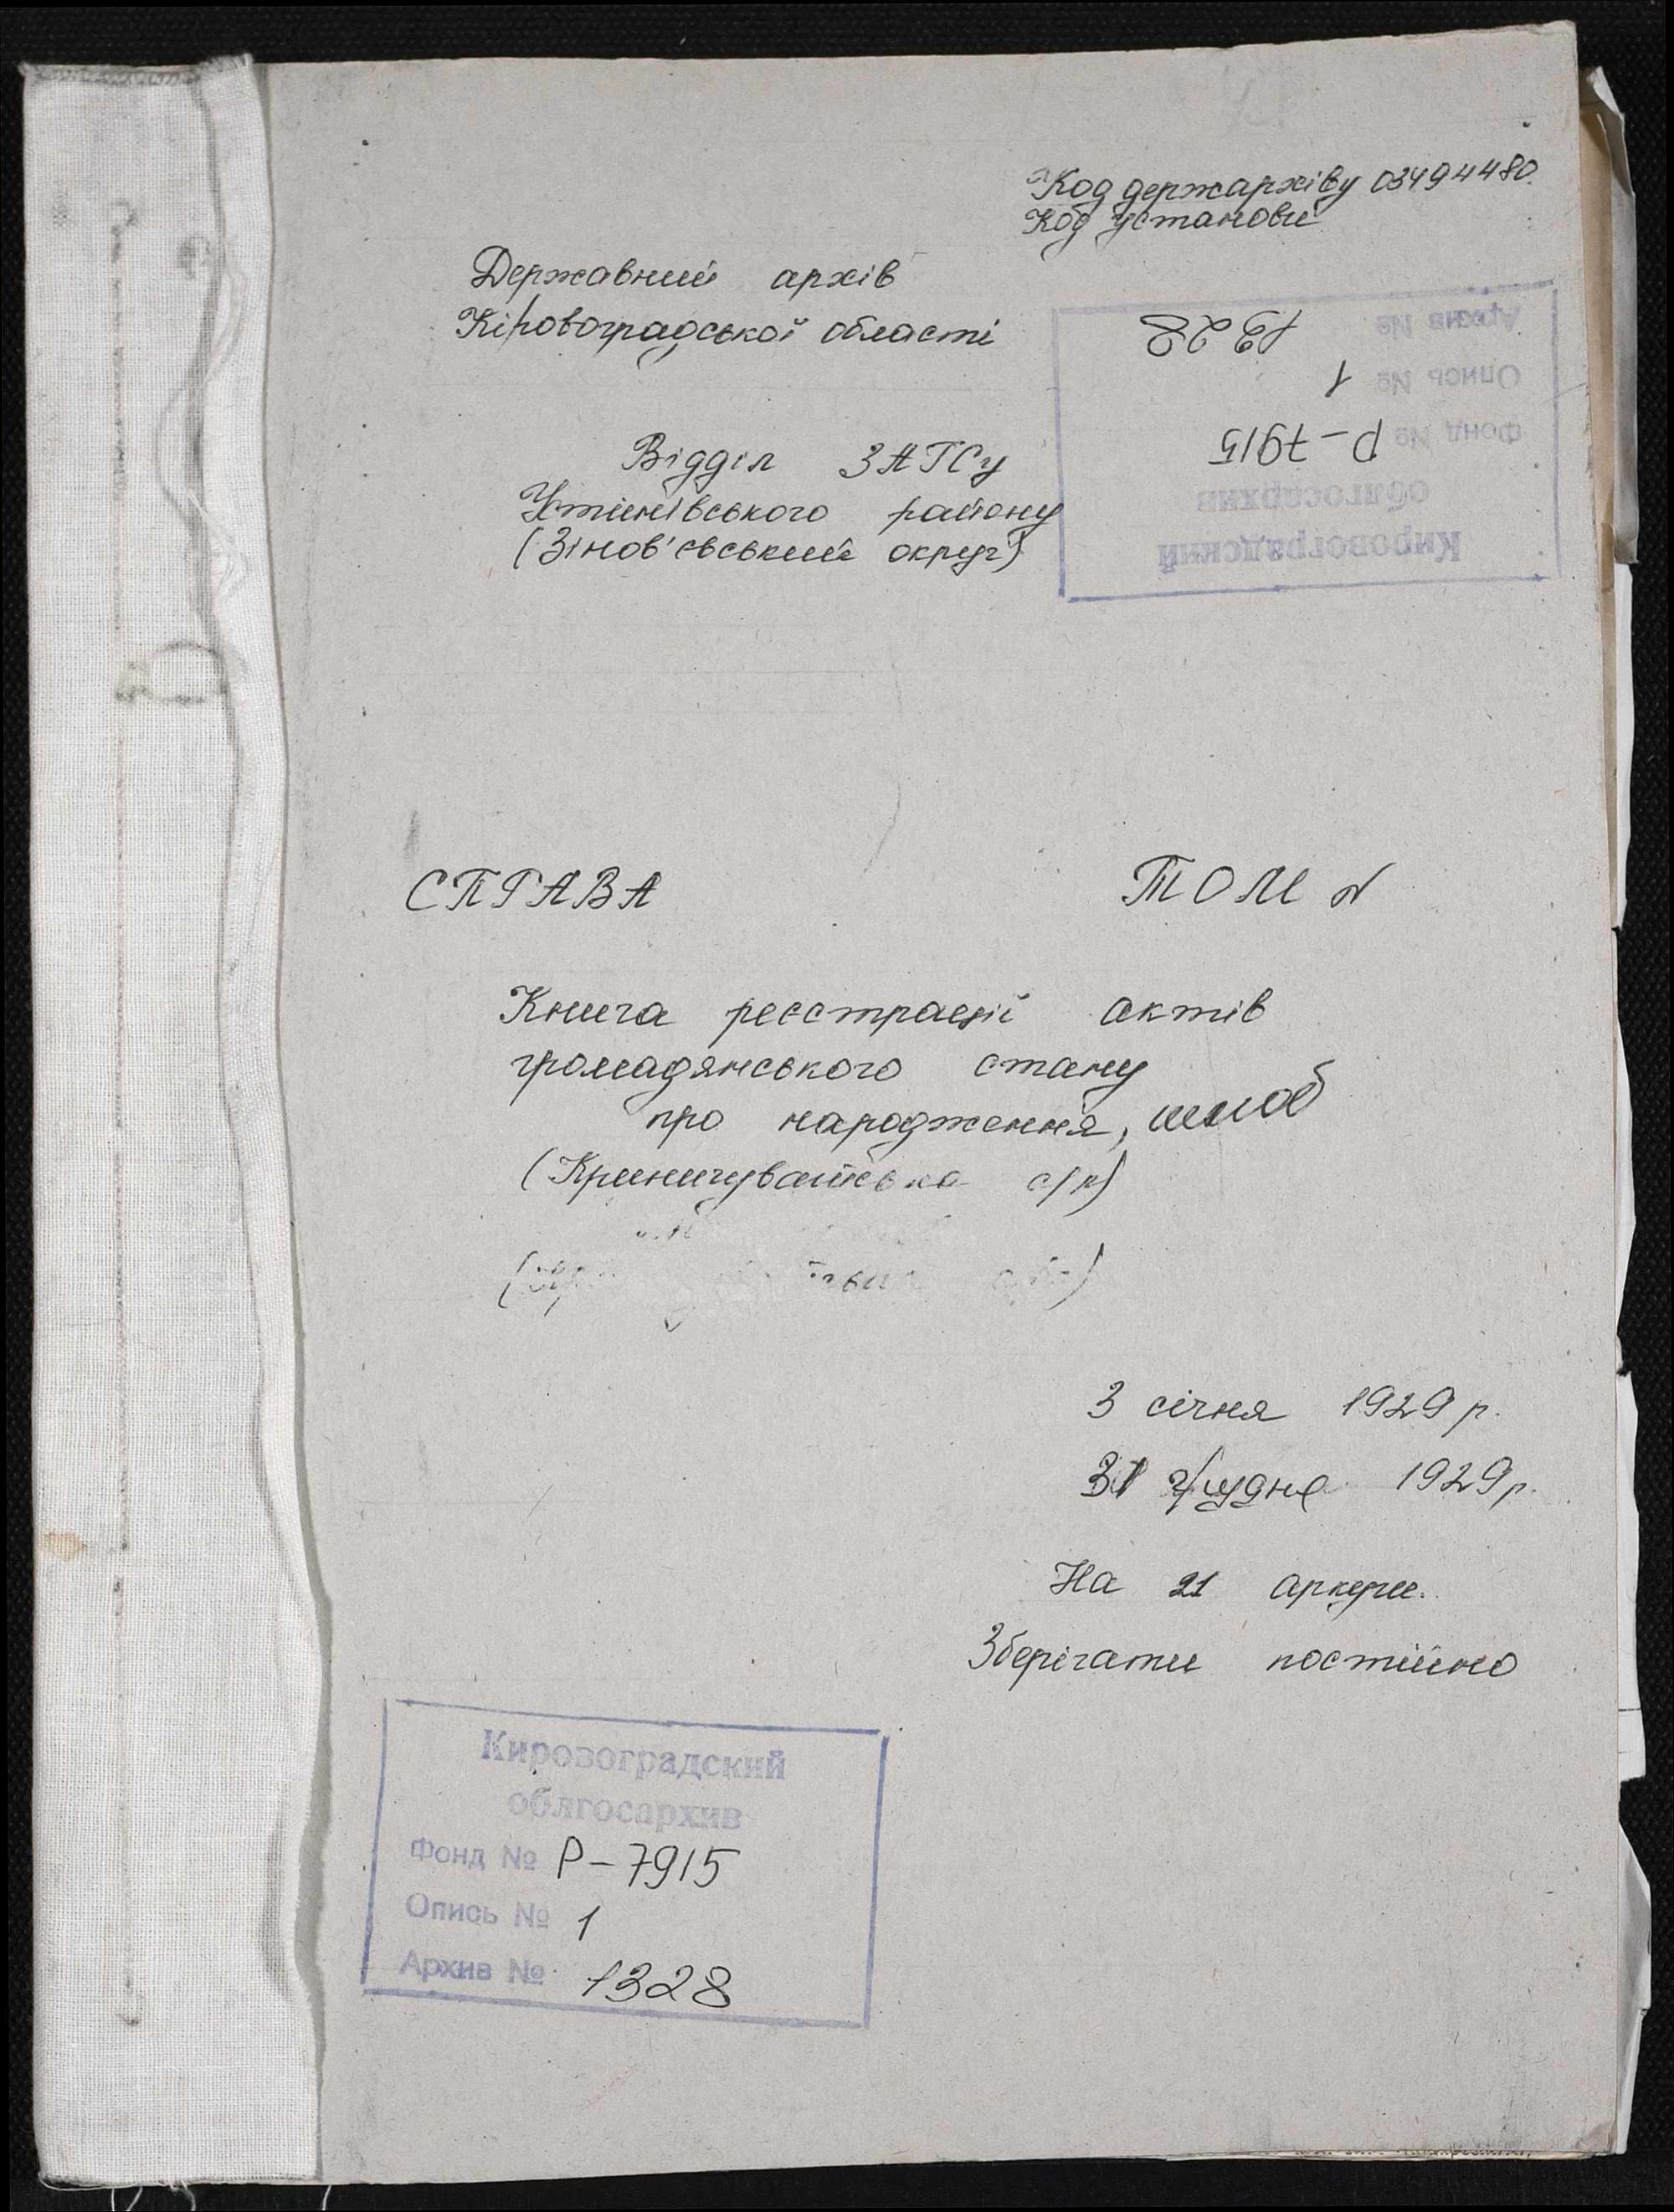 Код держархіву 03494480
Код установи
Державний архів
Кіровоградської області
Кировоградский
облгосархив
Фонд № Р-7915
Опись № 1
Архив № 1328
Відділ ЗАГСу
Устинівського району
(Зінов'євський округ)
СПРАВА ТОМ N
Книга реєстрації актів
громадянського стану
про народження, шлюб
(Криничуватська с/р)
3 січня 1929 р.
31 грудня 1929 р.
На 21 аркуш.
Зберігати постійно
Кировоградский
облгосархив
Фонд № Р-7915
Опись № 1
Архив № 1328